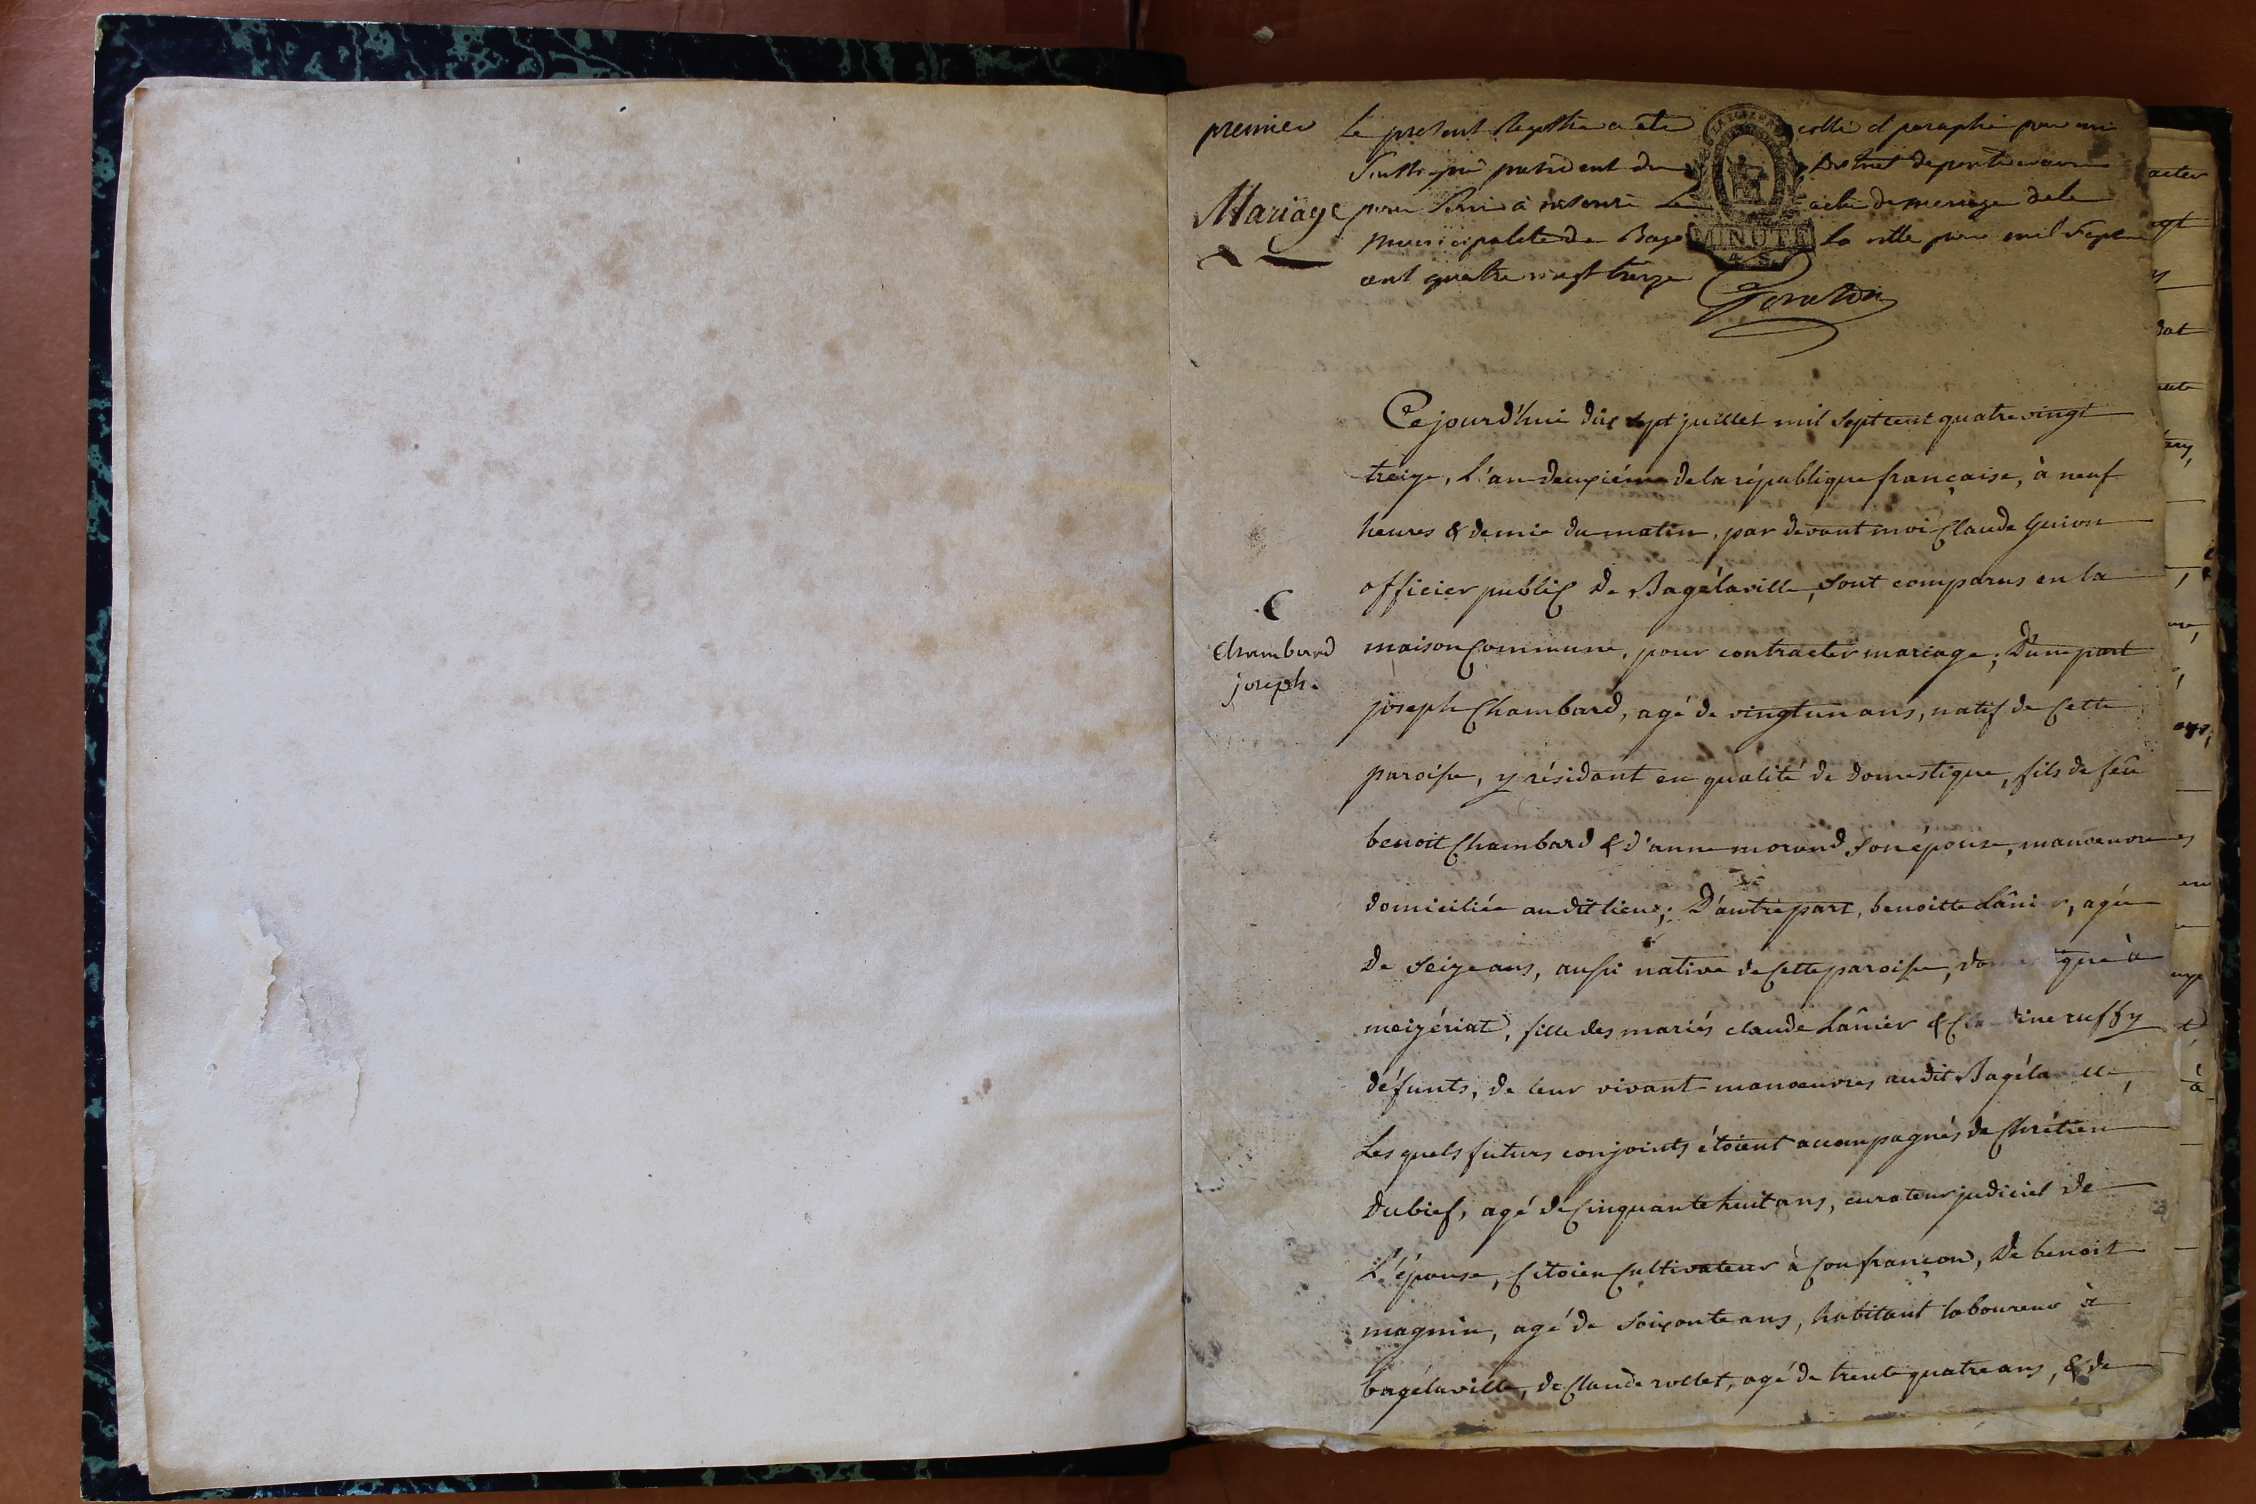 premier
Le present Registre a eté cotté et paraphé par moi
Soussigné president du District de pontdevaux
Mariage
pour servir à inscrire Les acte de mariage de la
municipalité de Bagé la ville pour mil sept
cent quatre vingt treize
LA LOI
MINUTE
4 S.
Cejourd'hui dix sept juillet mil sept cent quatre vingt
treize, L'an deuxiéme de la république française, à neuf
heures & demie du matin, par devant moi Claude Guion
officier public de Bagélaville, sont comparus en la
C
Chambard
joseph.
maison Commune, pour contracter mariage; D'une part
joseph Chambard, agé de vingt un ans, natif de Cette
paroisse, y résidant en qualité de domestique, fils de feu
benoit Chambard & d'anne morand son épouse, manoeuvres
domiciliée audit lieu; D'autre part, benoitte Lânier, agée
de seize ans, aussi native de Cette paroisse, domestique à
meizériat, fille des mariés claude Lânier & Claudine ruffy
défunts, de leur vivant manoeuvres audit Bagélaville,
Lesquels futurs conjoints étoient accompagnés de Chrétien
Dubief, agé de Cinquante huit ans, curateur judiciel de
L'épouse, Citoien Cultivateur à Confrançon, De benoit
magnin, agé de soixante ans, habitant laboureur à
bagélaville, de Claude rollet, agé de trente quatre ans, & de